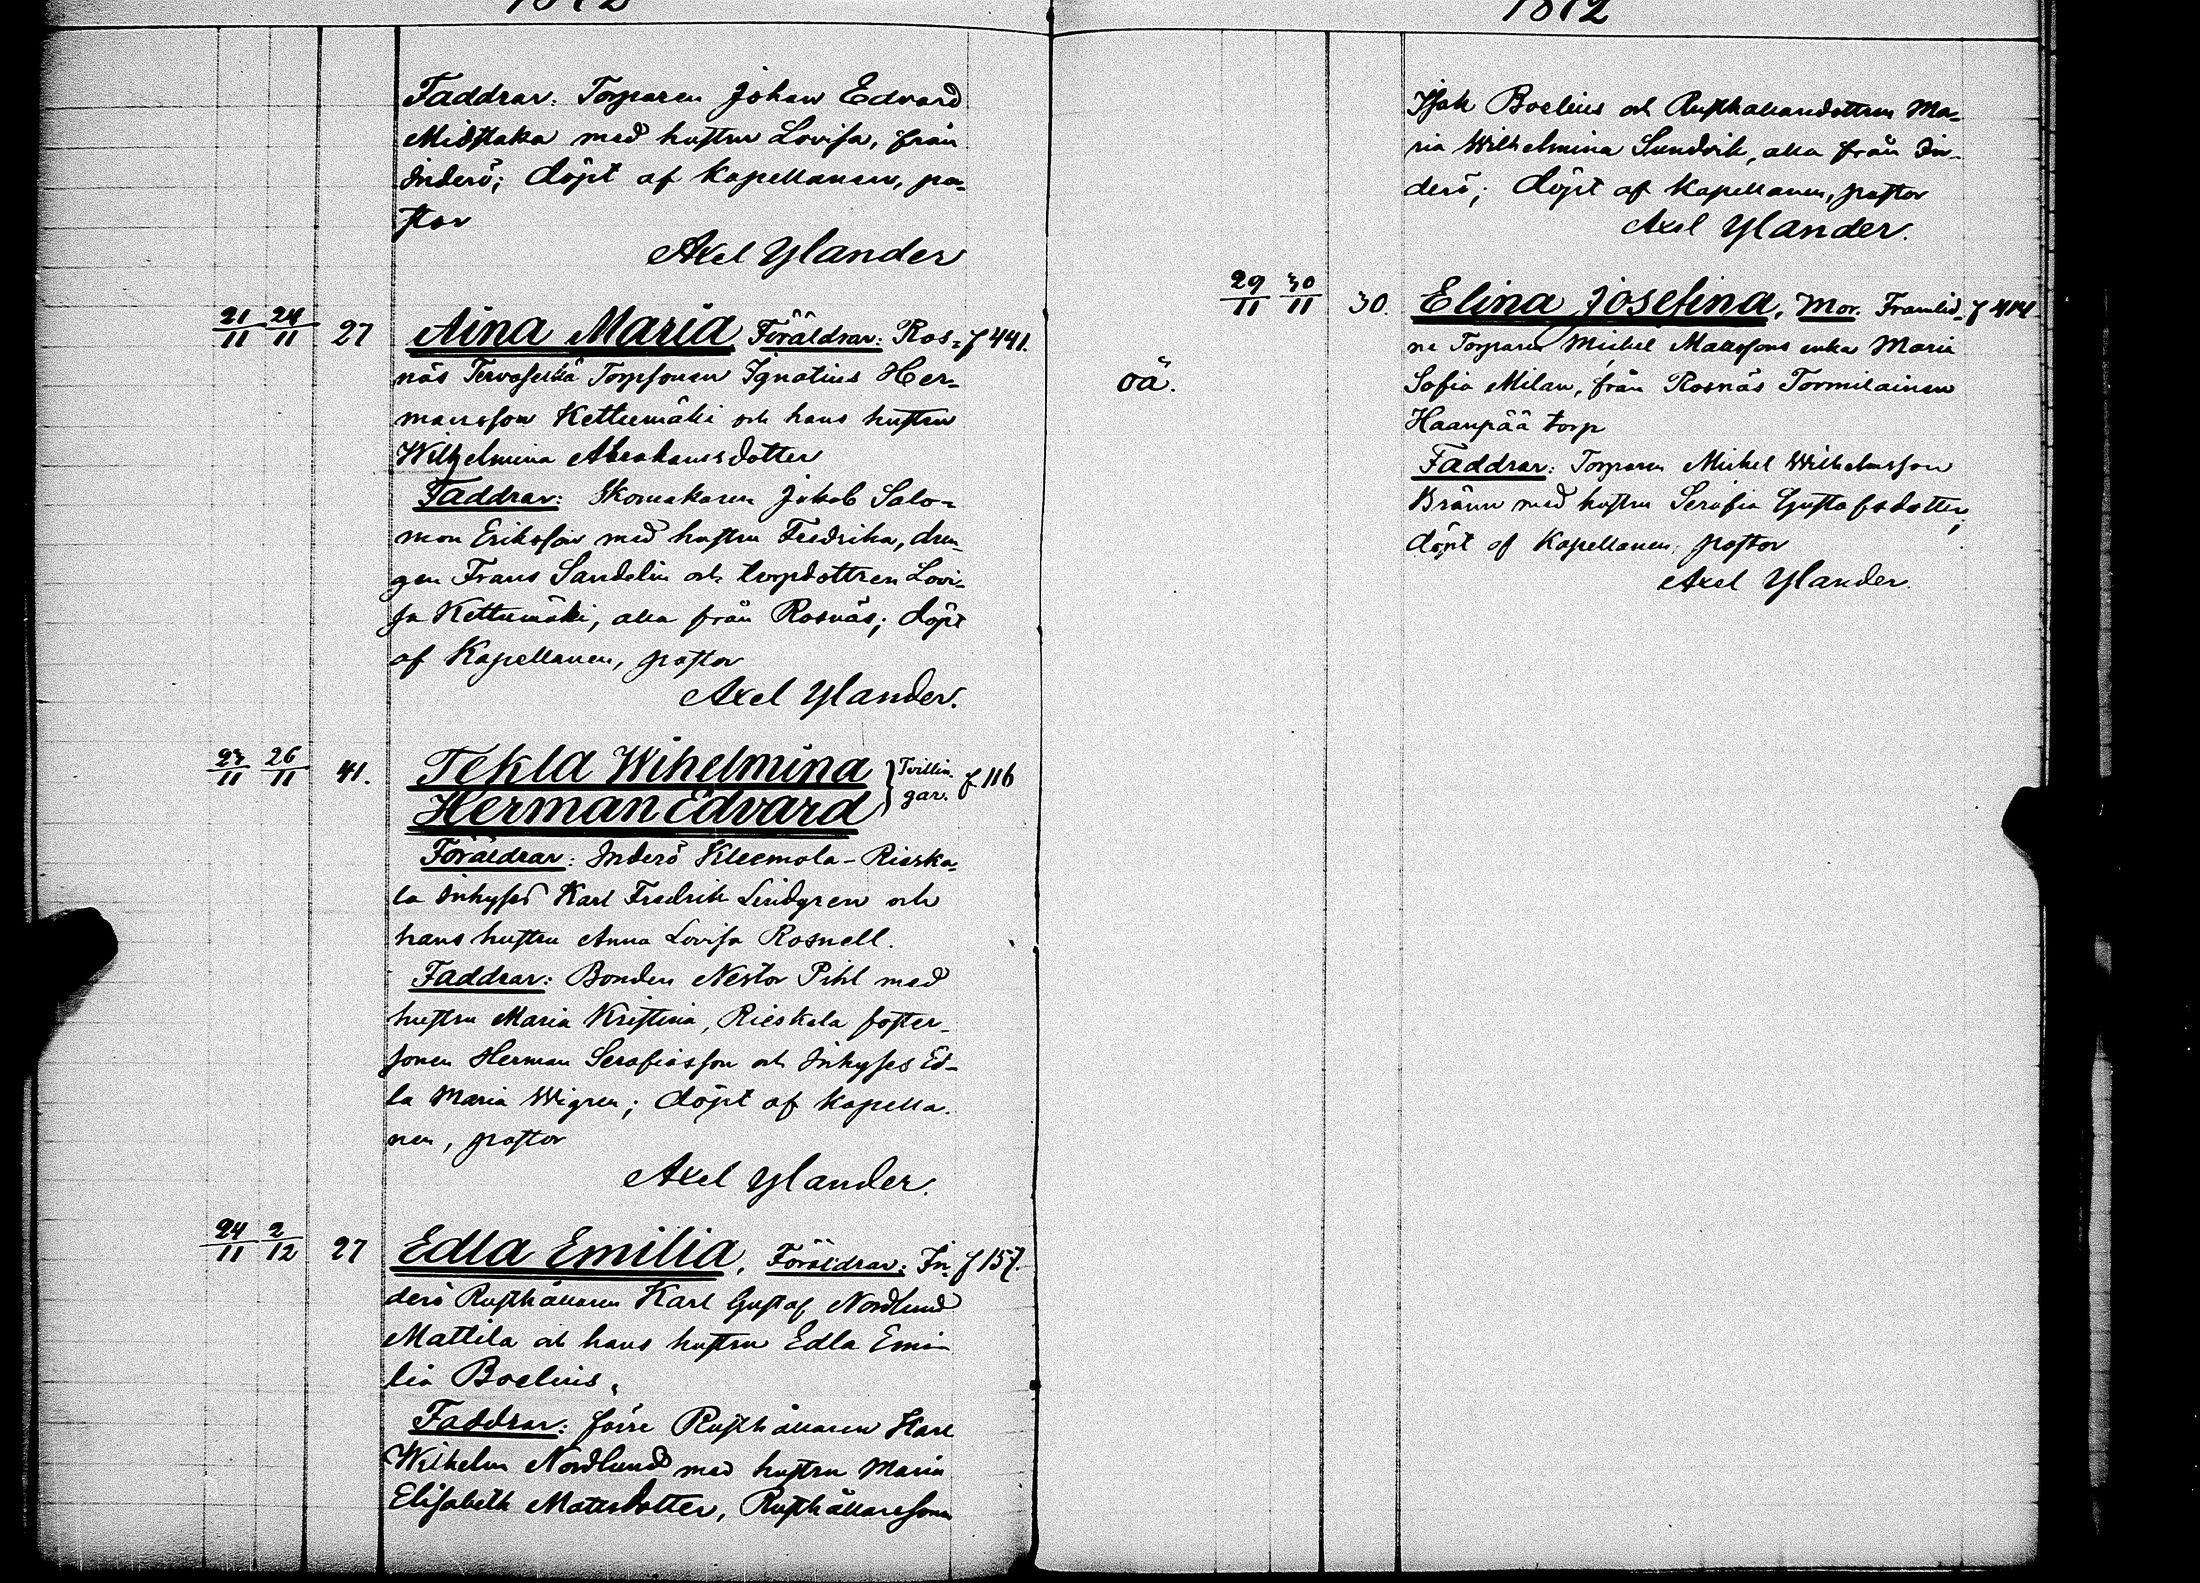 1872
Faddrar: Torparen Johan Edvard
Midstaka med hustru Lovisa, från
Inderö; döpt af kapellanen, pa-
stor
Axel Ylander
21/11 24/11 27 Aina Maria Föräldrar: Ros- f 441.
näs Torpsonen Ignatius Her-
mansson Kettumäki och hans hustru
Wilhelmina Abrahamsdotter
Faddrar: Skomakaren Jakob Salo-
mon Eriksson med hustru Fredrika, drän-
gen Frans Sandelin och torpdottren Lovi-
sa Kettumäki, alla från Rosnäs; döpt
af Kapellanen, pastor
Axel Ylander.
23/11 26/11 41. Tekla Wihelmina } Tvillin- f 116
Herman Edvard gar.
Föräldrar: Inderö Kleemola-Rieska-
la Inhyses Karl Fredrik Lindgren och
hans hustru Anna Lovisa Rosnell.
Faddrar: Bonden Nestor Pihl med
hustru Maria Kristina, Rieskala foster-
sonen Herman Serafiasson och Inhyses Ed-
la Maria Wigren; döpt af kapella-
nen, pastor
Axel Ylander.
24/11 2/12 27 Edla Emilia, Föräldrar: In- f 157.
derö Rusthållaren Karl Gustaf Nordlund
Mattila och hans hustru Edla Emi-
lia Boelius.
Faddrar: förre Rusthållaren Karl
Wilhelm Nordlund med hustru Maria
Elisabeth Matsdotter, Rusthållaresonen
1872
Isak Boelius och Rusthållaredottren Ma-
ria Wilhelmina Sundvik, alla från In-
derö; döpt af Kapellanen, pastor
Axel Ylander.
oä. 29/11 30/11 30. Elina Josefina, Mor. Framlid- f 414
ne Torparen Michel Matssons enka Maria
Sofia Milan, från Rosnäs Tormilainen
Haanpää torp
Faddrar: Torparen Michel Wilhelmsson
Bränn med hustru Serafia Gustafsdotter;
döpt af Kapellanen, pastor
Axel Ylander.